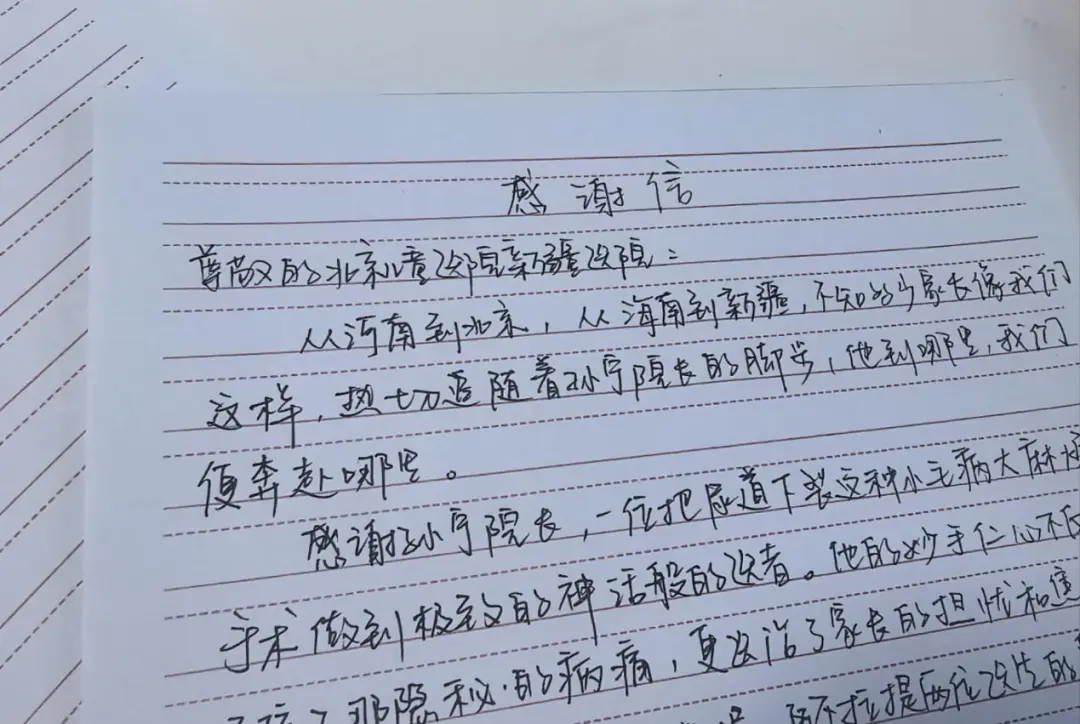 感谢信
尊敬的北京儿童医院新疆医院：
从河南到北京，从海南到新疆，不知多少家长像我们
这样，热切追随着孙宁院长的脚步，他到哪里，我们
便奔赴哪里。
感谢孙小宁院长，一位把尿道下裂这种小毛病大麻烦
手术做到极致的神话般的医者。他的妙手仁心不
那隐秘的病痛，更医治了家长的担忧和
两位医生的